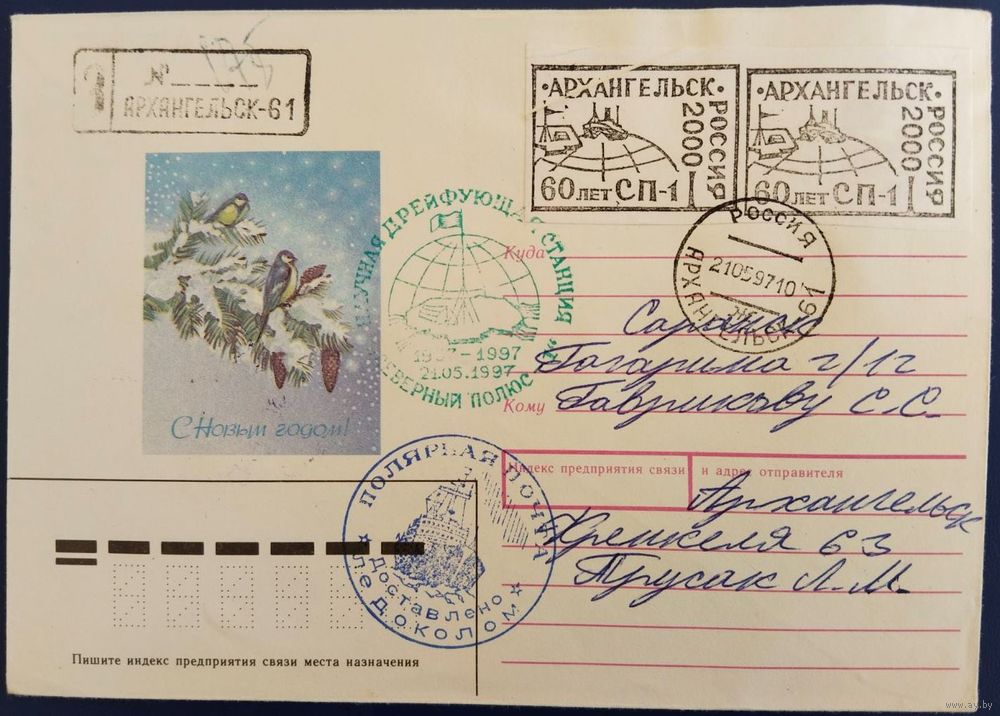 № 175
АРХАНГЕЛЬСК-61
·АРХАНГЕЛЬСК·
РОССИЯ
2000
60 ЛЕТ СП-1
·АРХАНГЕЛЬСК·
РОССИЯ
2000
60 ЛЕТ СП-1
РОССИЯ
21059710
АРХАНГЕЛЬСК 61
НАУЧНАЯ ДРЕЙФУЮЩАЯ СТАНЦИЯ
1937-1997
21.05.1997
СЕВЕРНЫЙ ПОЛЮС
С Новым годом!
Куда
Саранск
Гагарина 2/12
Кому
Гаврикову С.С.
Индекс предприятия связи и адрес отправителя
Архангельск
Кренкеля 63
Прусак Л.М.
ПОЛЯРНАЯ ПОЧТА
Доставлено
ледоколом
Пишите индекс предприятия связи места назначения
www.ay.by